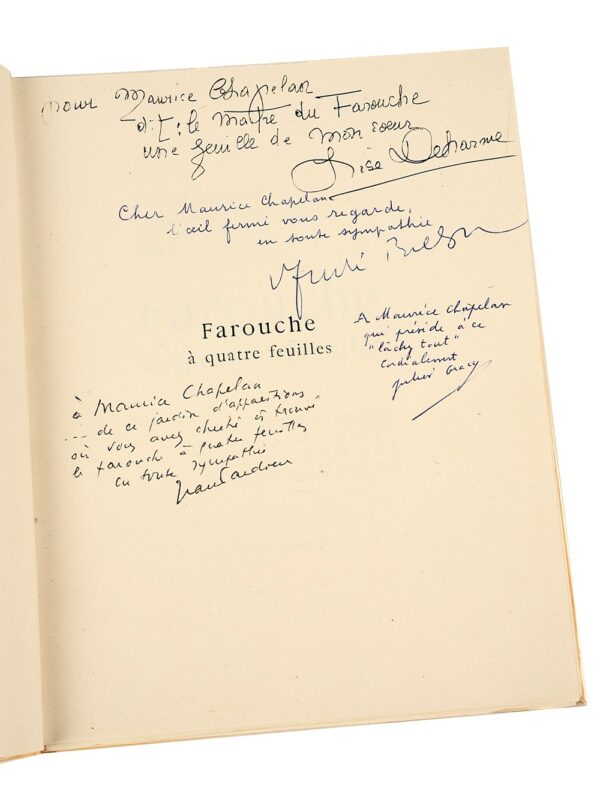 pour Maurice Chapelan
dit : le Maître du Farouche
une feuille de mon coeur
Lise Deharme
Cher Maurice Chapelan
l'œil fermé vous regarde,
en toute sympathie
André Breton
Farouche
à quatre feuilles
A Maurice Chapelan
qui préside à ce
"lâchez tout"
cordialement
Julien Gracq
à Maurice Chapelan
... de ce jardin d'apparitions
où vous avez cherché et trouvé
le farouch à quatre feuilles
en toute sympathie
Jean Tardieu